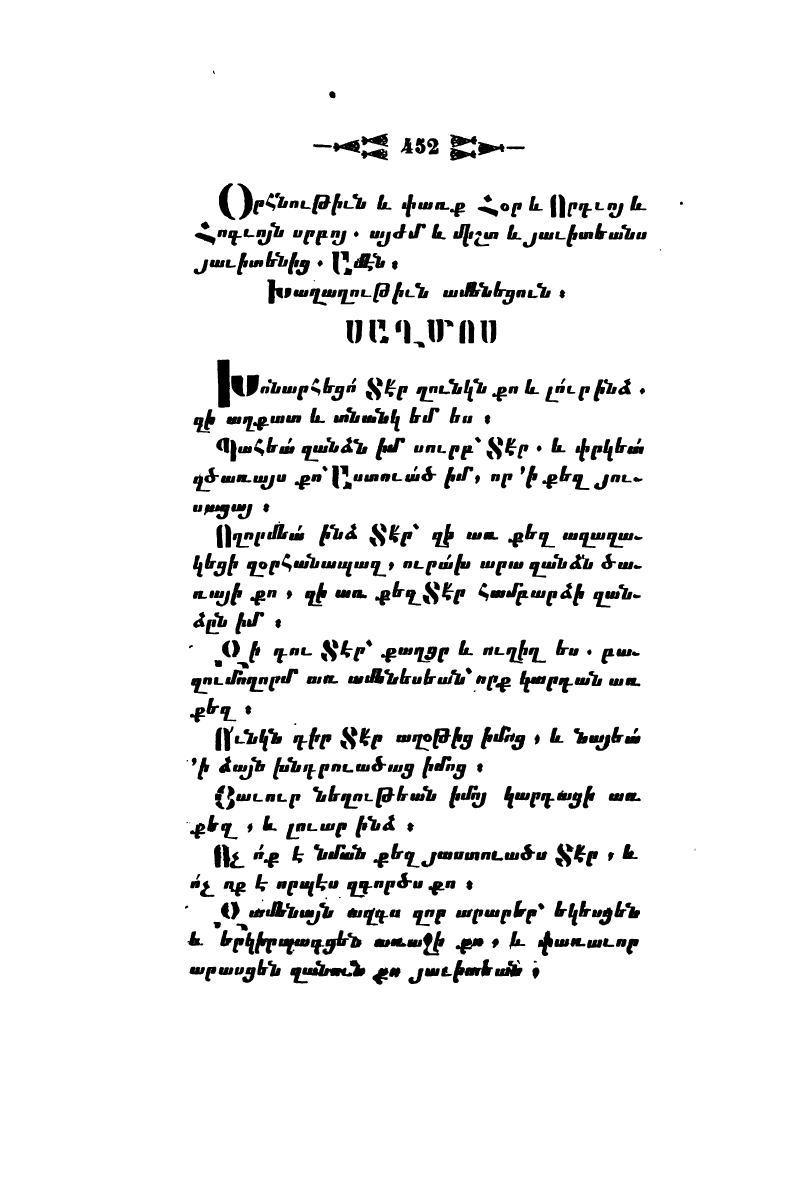 452
Օրհնութիւն և փառք Հօր և Որդւոյ և
Հոգւոյն սրբոյ. այժմ և միշտ և յաւիտեանս
յաւիտենից. Ամէն։
Խաղաղութիւն ամենեցուն։
ՍԱՂՄՈՍ
Խոնարհեցո՛ Տէր զունկն քո և լո՛ւր ինձ.
զի աղքատ և տնանկ եմ ես։
Պահեա՛ զանձն իմ սուրբ՝ Տէր. և փրկեա՛
զծառայս քո՝ Աստուա՛ծ իմ, որ ՚ի քեզ յու-
սացայ։
Ողորմեա՛ ինձ Տէր՝ զի առ քեզ աղաղա-
կեցի զօրհանապազ, ուրա՛խ արա զանձն ծա-
ռայի քո, զի առ քեզ Տէր համբարձի զան-
ձըն իմ։
Զի դու Տէր՝ քաղցր և ուղիղ ես. բա-
զումողորմ առ ամենեսեան՝ որք կարդան առ
քեզ։
Ո՛ւնկն դիր Տէր աղօթից իմոց, և նայեա՛
՚ի ձայն խնդրուածաց իմոց։
Յաւուր նեղութեան իմոյ կարդացի առ
քեզ, և լուար ինձ։
Ոչ ո՛ք է նման քեզ յաստուածս Տէր, և
ո՛չ ոք է որպէս զգործս քո։
Զամենայն ազգս զոր արարեր՝ եկեսցեն
և երկիրպագցեն առաջի քո, և փառաւոր
արասցեն զանուն քո յաւիտեան։